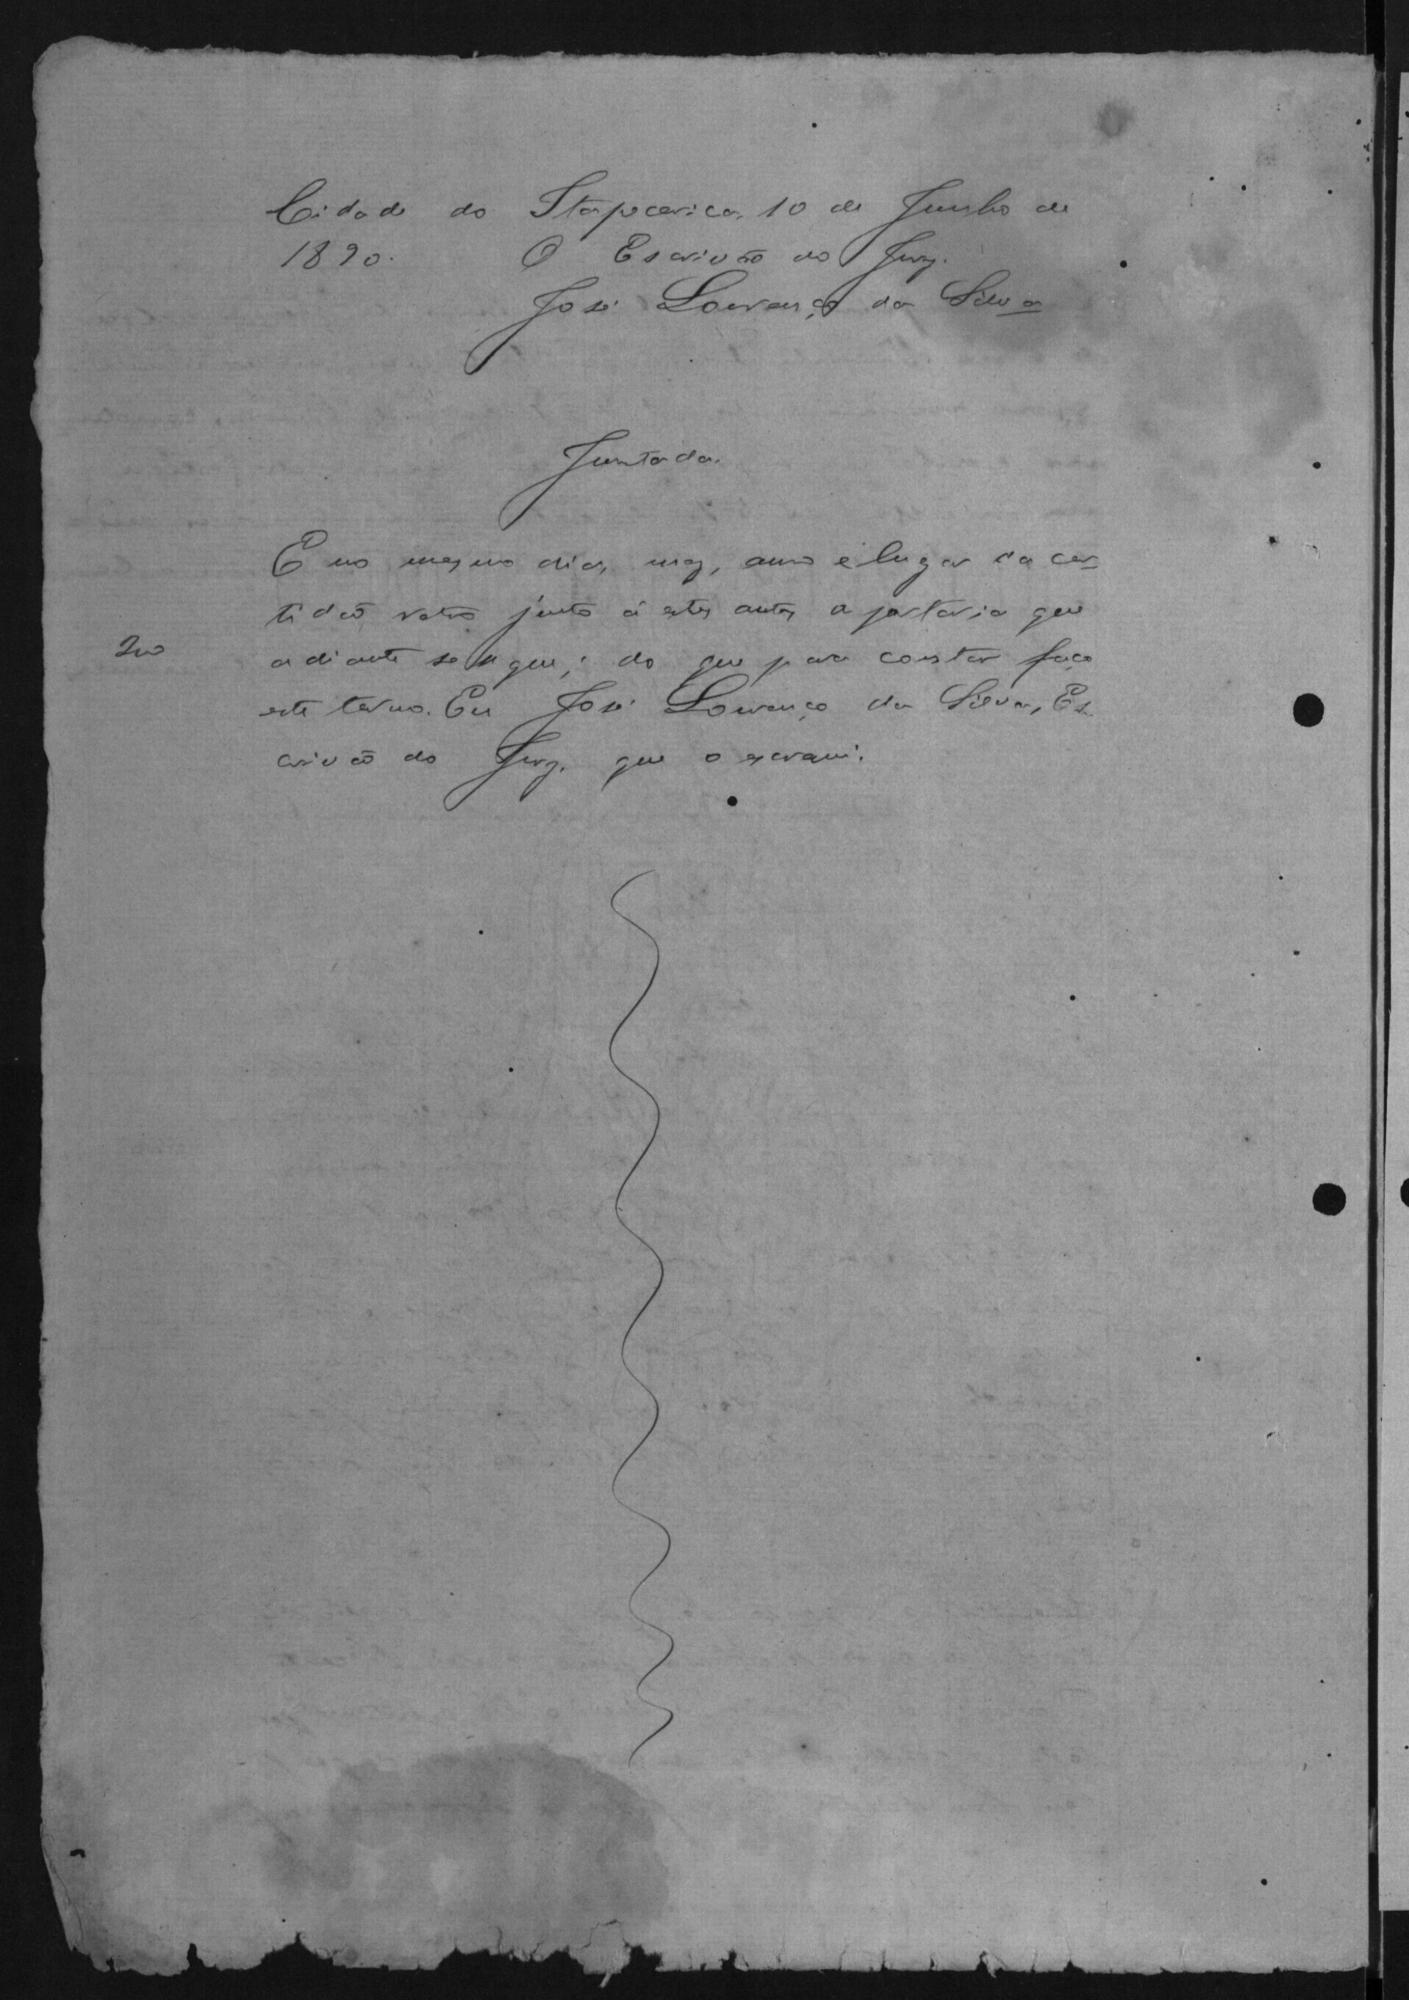 Cidade do Itapecerica, 10 de Junho de
1890. O Escrivão do Jury.
José Lourenço da Silva
Juntada.
E no mesmo dia, mez, anno e lugar da cer-
tidaõ retro junto á estes autos a portaria que
adiante se segue; do que para constar faço
este termo. Eu José Lourenço da Silva, Es-
crivaõ do Jury. que o escrevi.